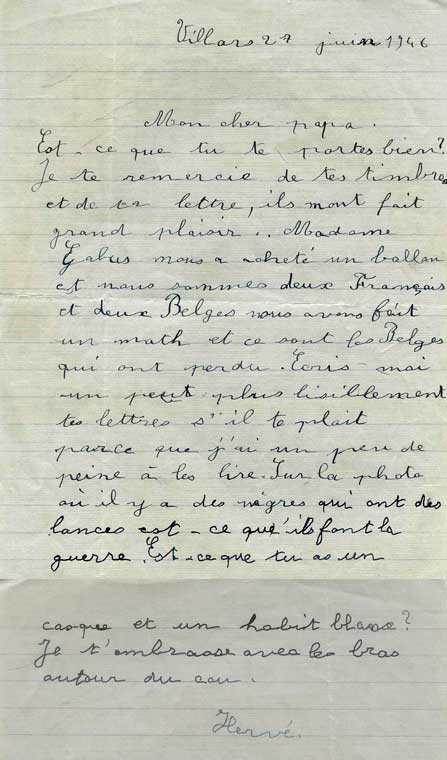 Villars 27 juin 1946
Mon cher papa.
Est-ce que tu te portes bien?
Je te remercie de tes timbres
et de ta lettre, ils mont fait
grand plaisir.. Madame
Gabus nous a acheté un ballon
et nous sommes deux Français
et deux Belges nous avons fait
un math et ce sont les Belges
qui ont perdu. Ecris-moi
un petit plus lisiblement
tes lettres s'il te plait
parce que j'ai un peu de
peine à les lire. Sur la photo
où il y a des nègres qui ont des
lances est-ce qu'ils font la
guerre. Est-ce que tu as un
casque et un habit blanc?
Je t'embrasse avec les bras
autour du cou.
Hervé.